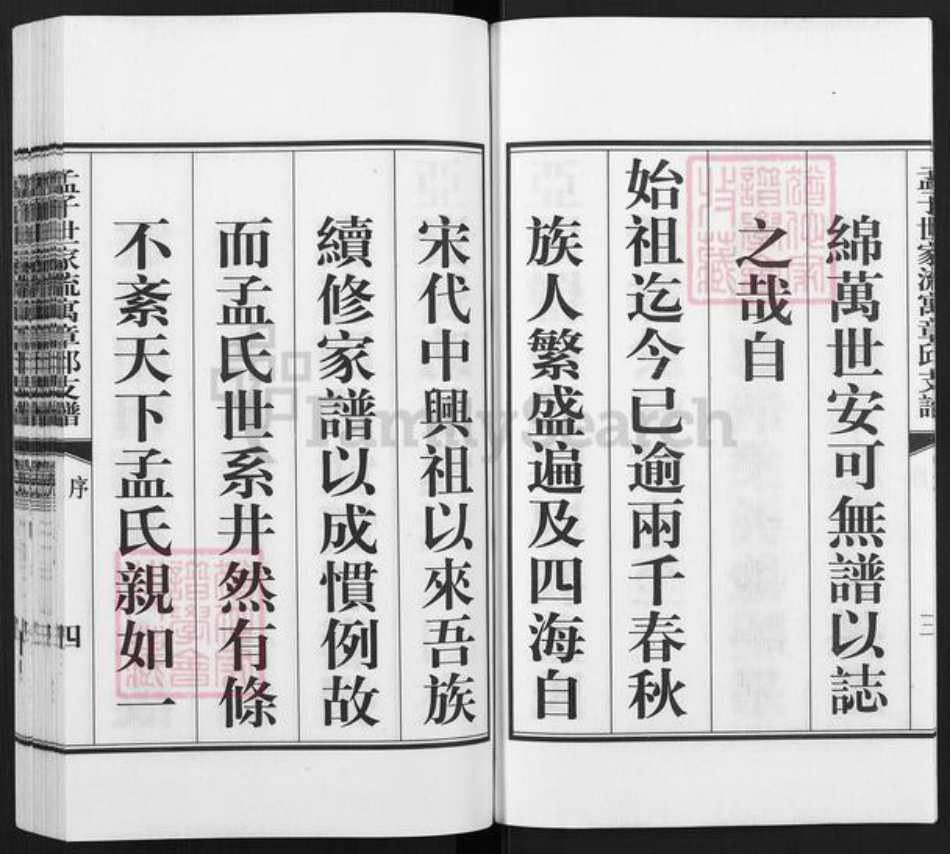 綿萬世安可無譜以誌
之哉自
始祖迄今已逾兩千春秋
族人繁盛遍及四海自
宋代中興祖以來吾族
續修家譜以成慣例故
而孟氏世系井然有條
不紊天下孟氏親如一
孟子世家流寓章邱支譜
序
四
FamilySearch